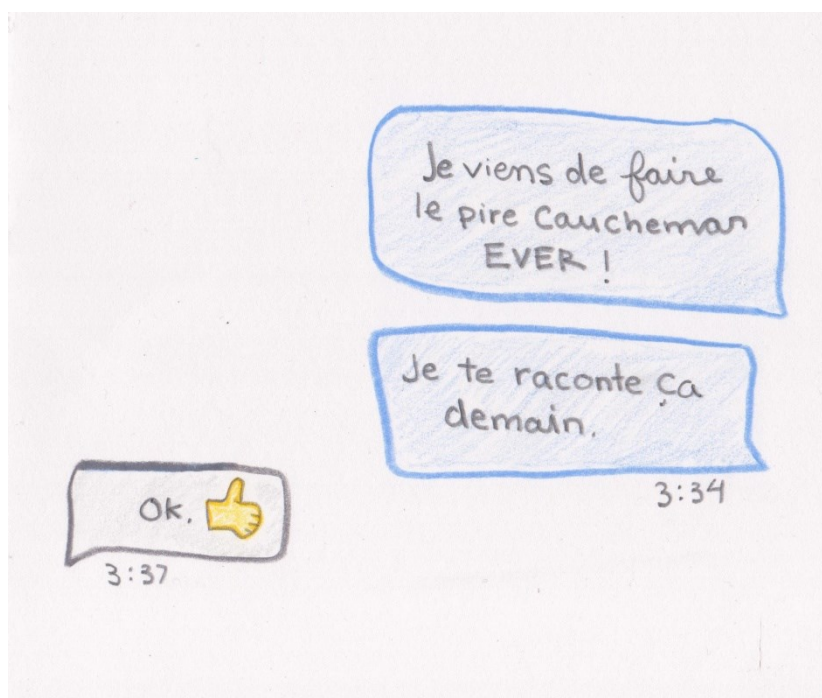 Je viens de faire
le pire Cauchemar
EVER !
Je te raconte ça
demain.
3:34
Ok. 👍
3:37